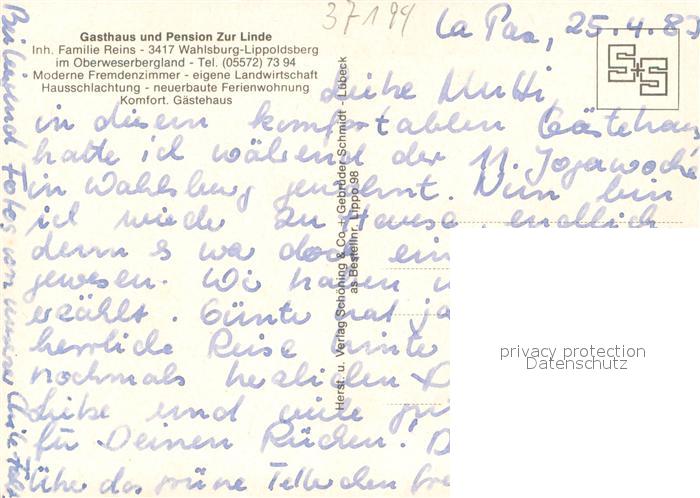 37199
Gasthaus und Pension Zur Linde
Inh. Familie Reins - 3417 Wahlsburg-Lippoldsberg
im Oberweserbergland - Tel. (05572) 73 94
Moderne Fremdenzimmer - eigene Landwirtschaft
Hausschlachtung - neuerbaute Ferienwohnung
Komfort. Gästehaus
La Paz, 25.4.85
Liebe Mutti
in diesem komfortablen Gästehaus
hatte ich während der 11. Jogawoche
in Wahlsburg gewohnt. Nun bin
ich wieder zu Hause, endlich
denn es war doch ein
gewesen. Wir haben
erzählt. Günter hat
herrliche Reise hinter
nochmals herzlichen
Liebe und viele
für Deinen Rücken.
Über das grüne Tellerchen
Herst. u. Verlag Schöning & Co + Gebrüder Schmidt - Lübeck
as Bestellnr. Lippo 98
und Fotos an
privacy protection
Datenschutz